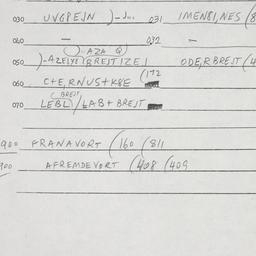 030 UVGPEJN )-J... 031 IMENBI,NES /8
040 — 032 —
)-AZA Q)
050 )-AZELYE (BREJTIZEJ ODE,RBREJT (4
060 C+E,RNUS+K8E (172
(BREJT
070 LEBL)/LAB+BREJT
900 FRANAVORT (160 (811
900 AFREMDEVORT (408 (409